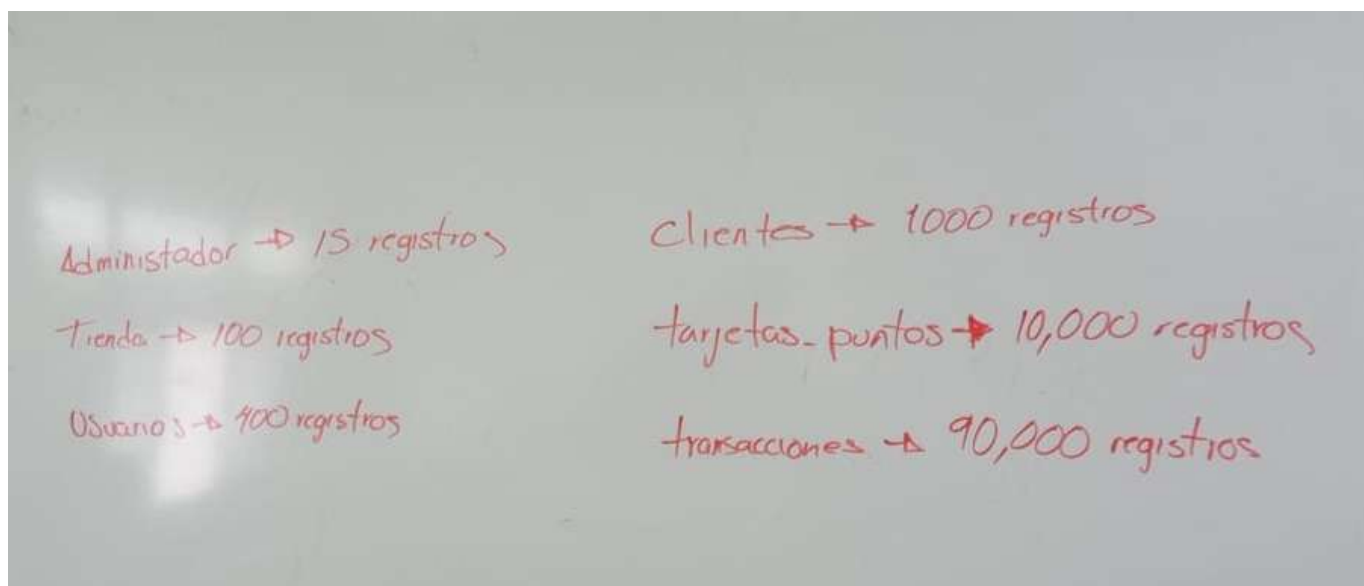 Administador → 15 registros
Tienda → 100 registros
Usuarios → 400 registros
Clientes → 1000 registros
tarjetas_puntos → 10,000 registros
transacciones → 90,000 registros